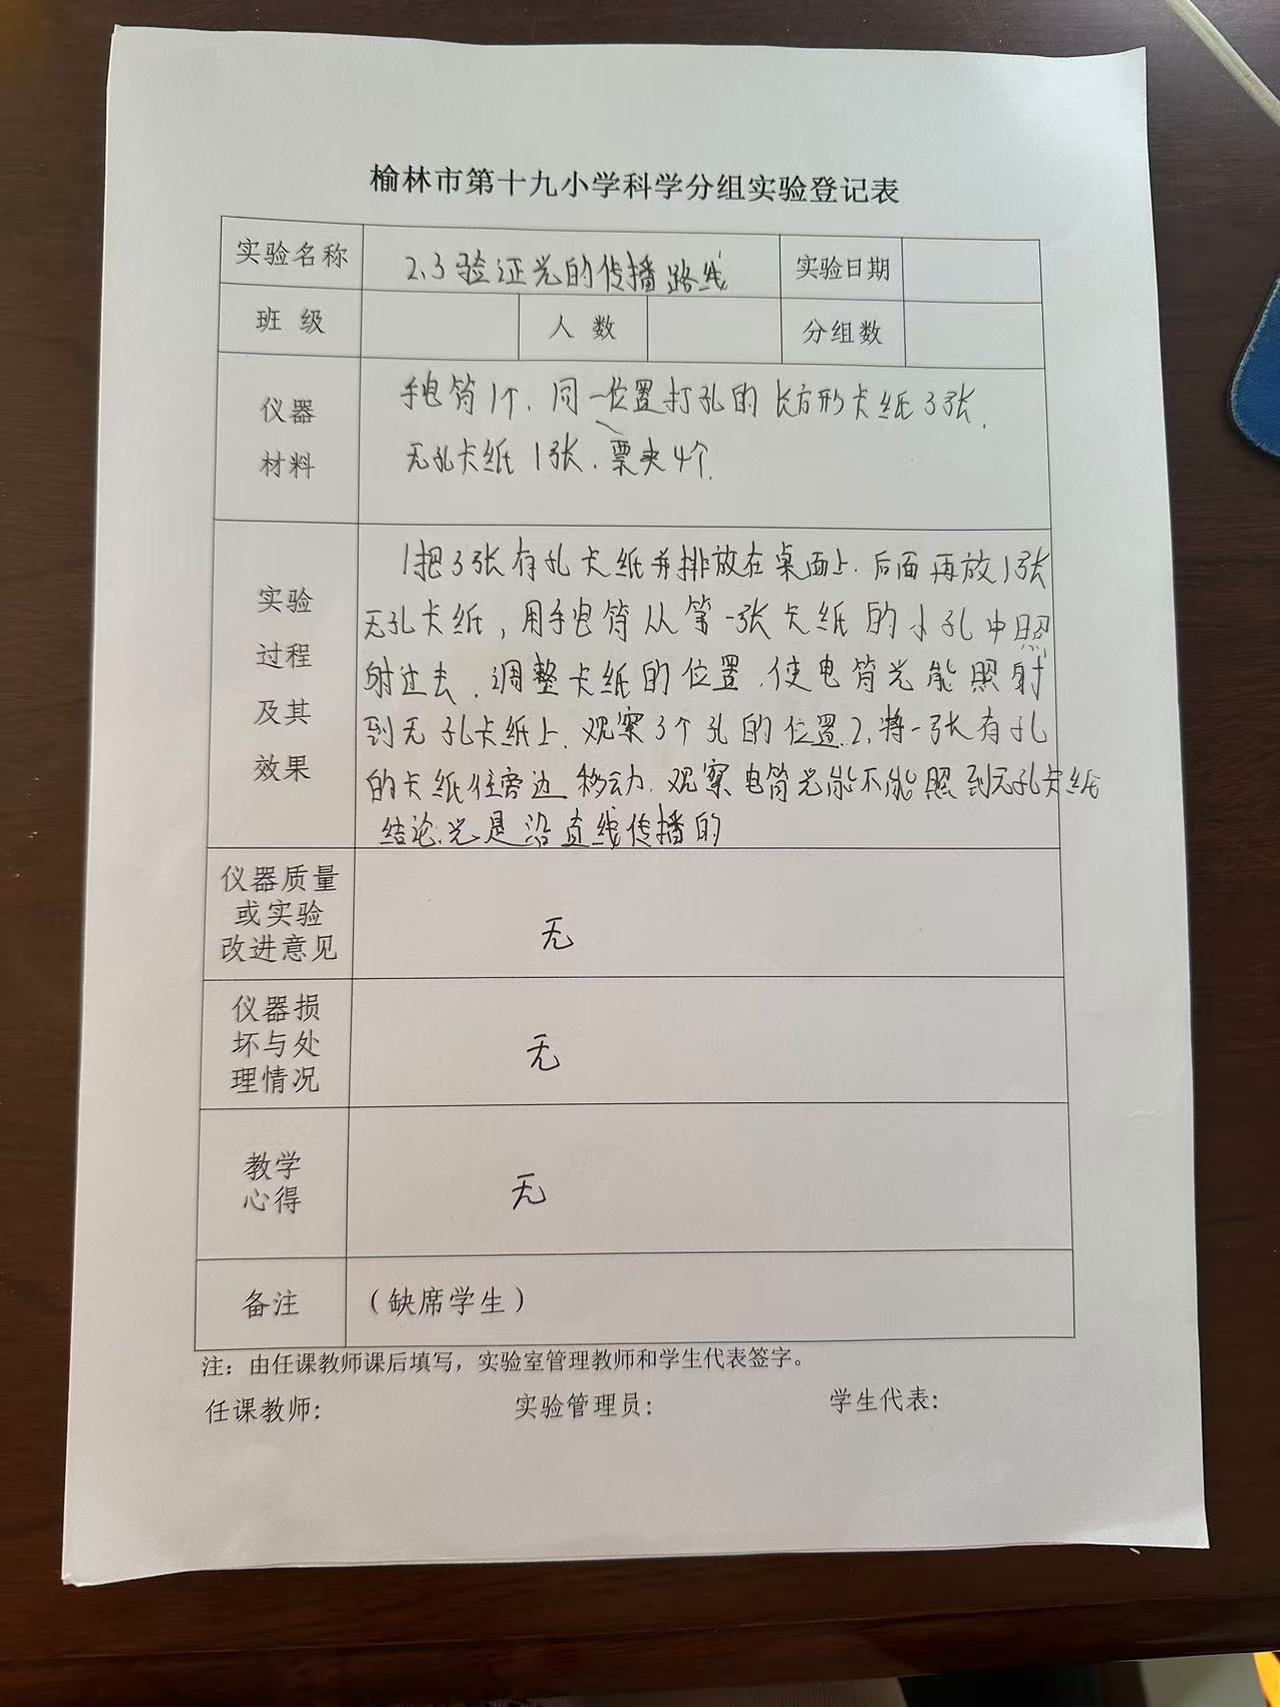 榆林市第十九小学科学分组实验登记表
实验名称 2.3验证光的传播路线 实验日期
班 级 人 数 分组数
仪器
材料
手电筒1个、同一位置打孔的长方形卡纸3张、
无孔卡纸1张、票夹4个.
实验
过程
及其
效果
1把3张有孔卡纸并排放在桌面上.后面再放1张
无孔卡纸,用手电筒从第一张卡纸的小孔中照
射过去.调整卡纸的位置.使电筒光能照射
到无孔卡纸上.观察3个孔的位置.2.将一张有孔
的卡纸往旁边移动.观察电筒光能不能照到无孔卡纸
结论:光是沿直线传播的
仪器质量
或实验
改进意见
无
仪器损
坏与处
理情况
无
教学
心得
无
备注 (缺席学生)
注：由任课教师课后填写，实验室管理教师和学生代表签字。
任课教师: 实验管理员: 学生代表: